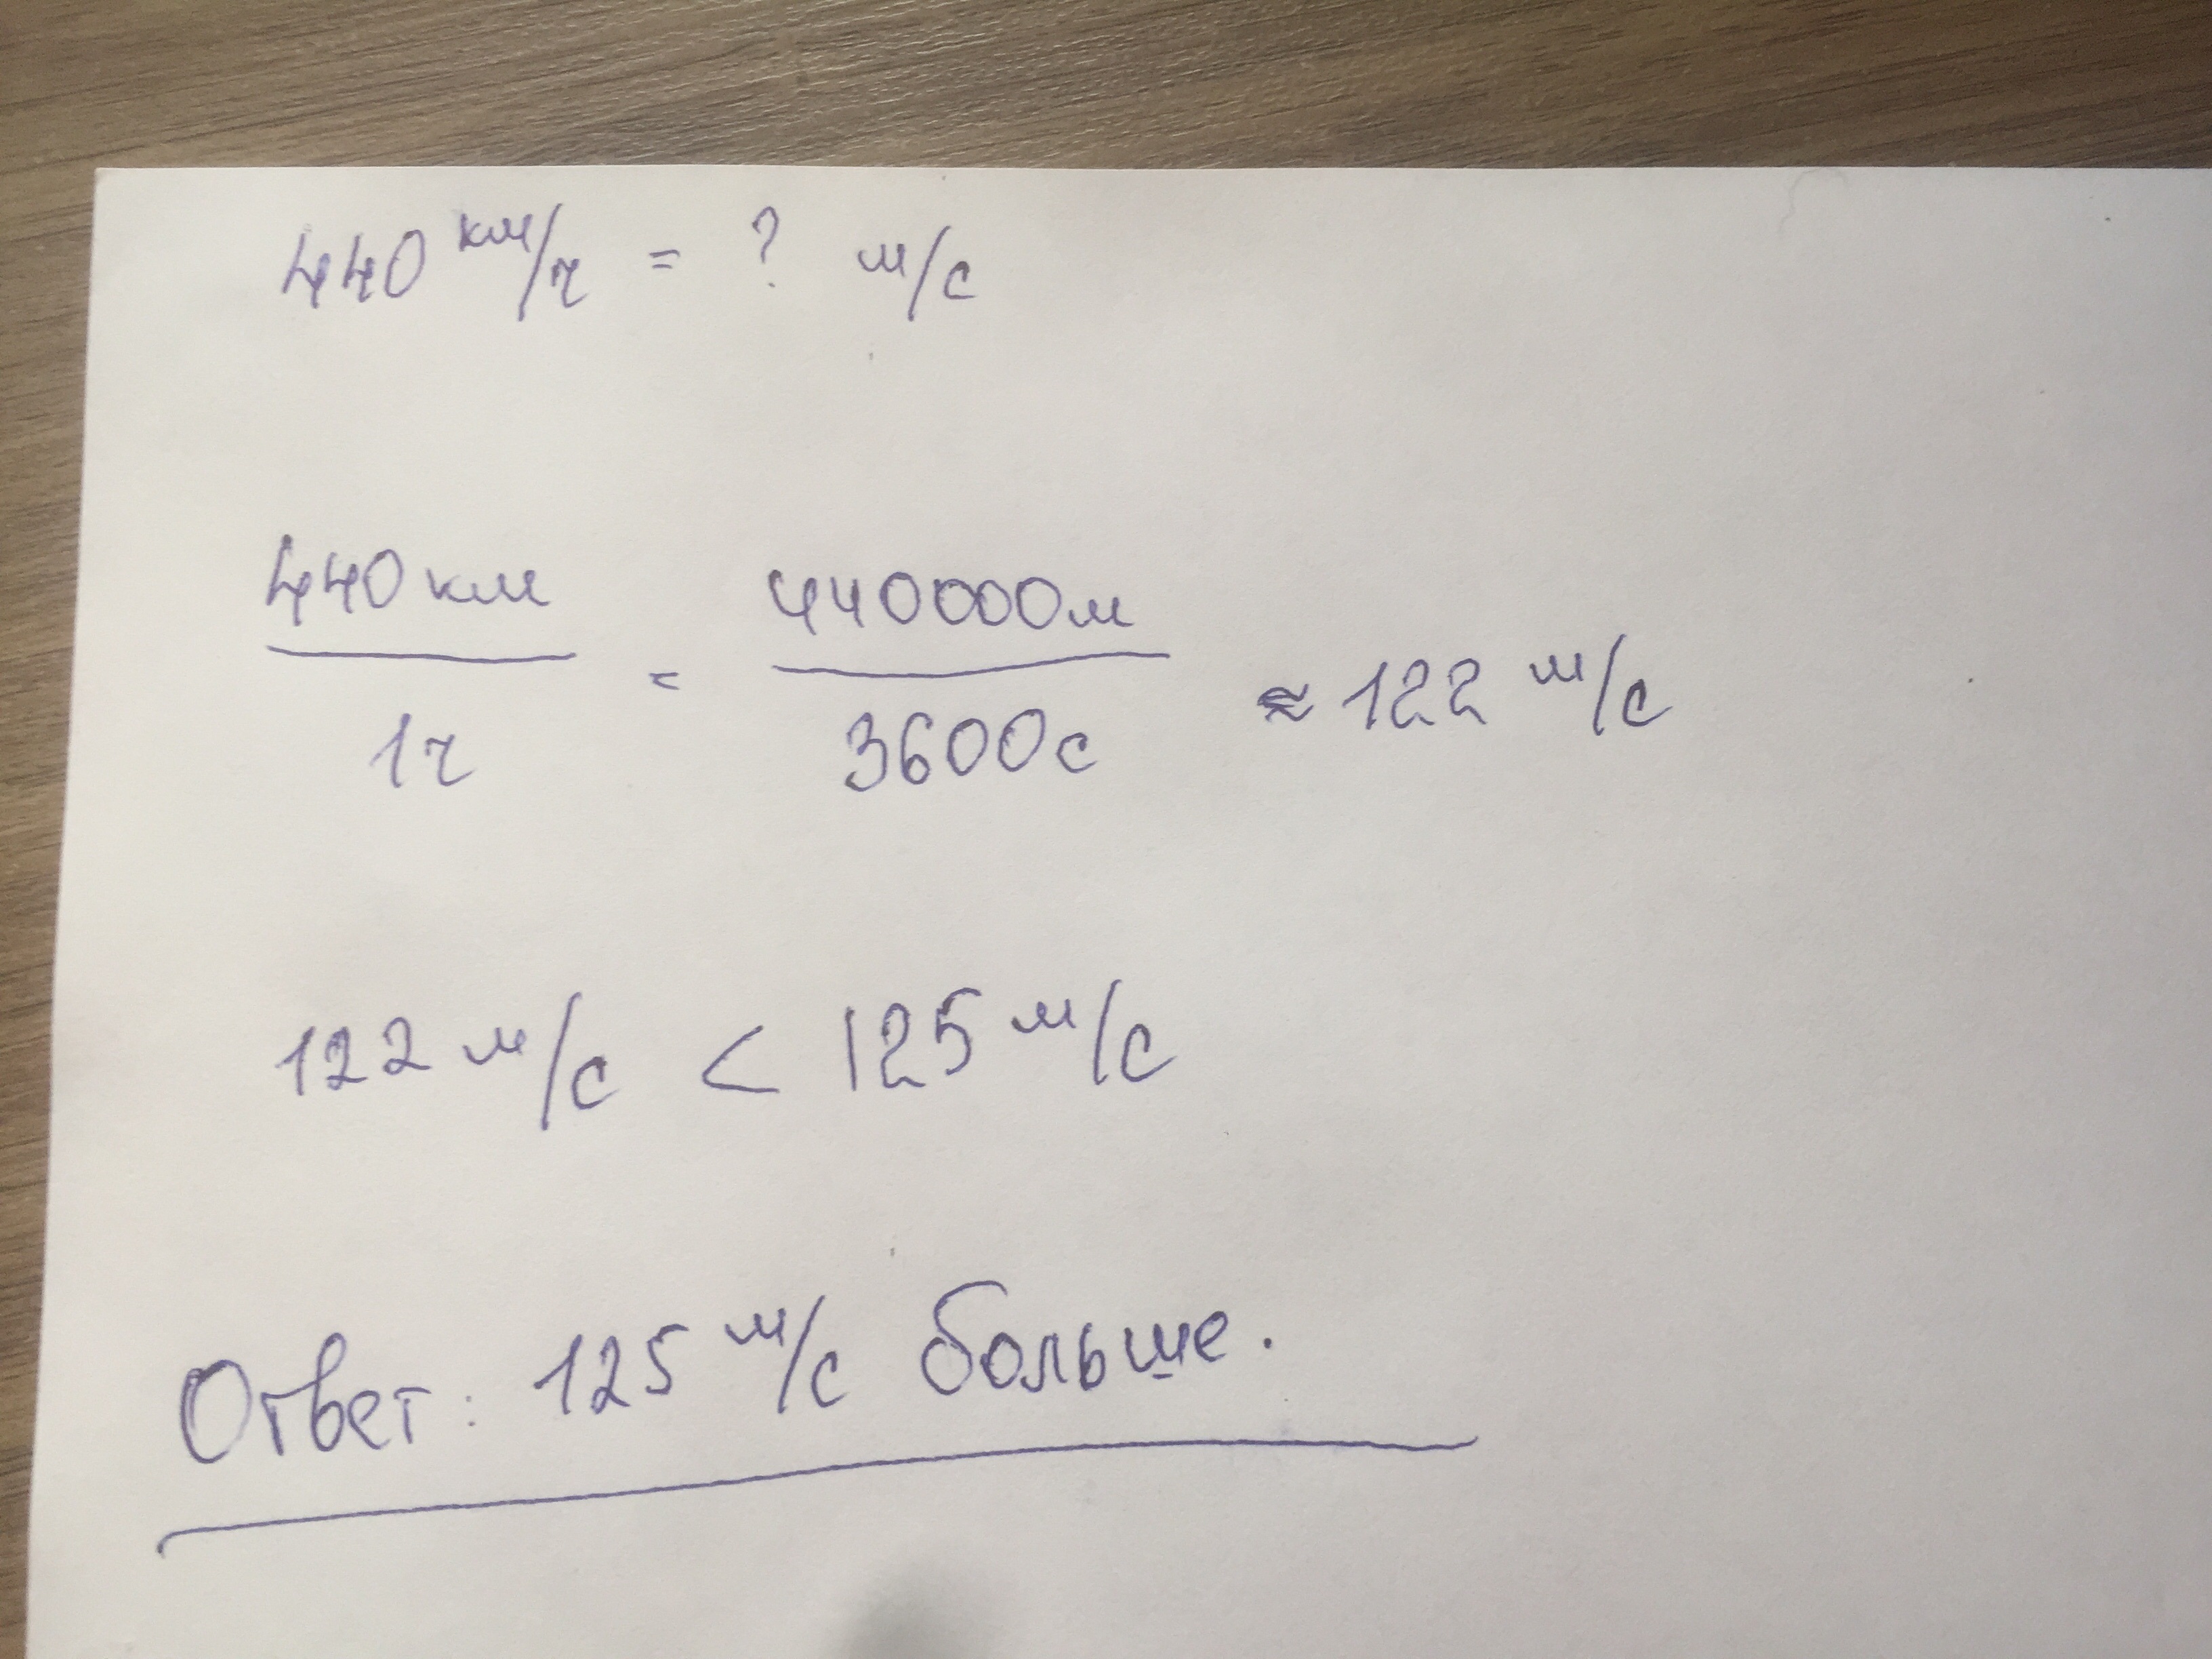 440 км/ч = ? м/с
440 км / 1 ч = 440000 м / 3600 с ≈ 122 м/с
122 м/с < 125 м/с
Ответ: 125 м/с больше.